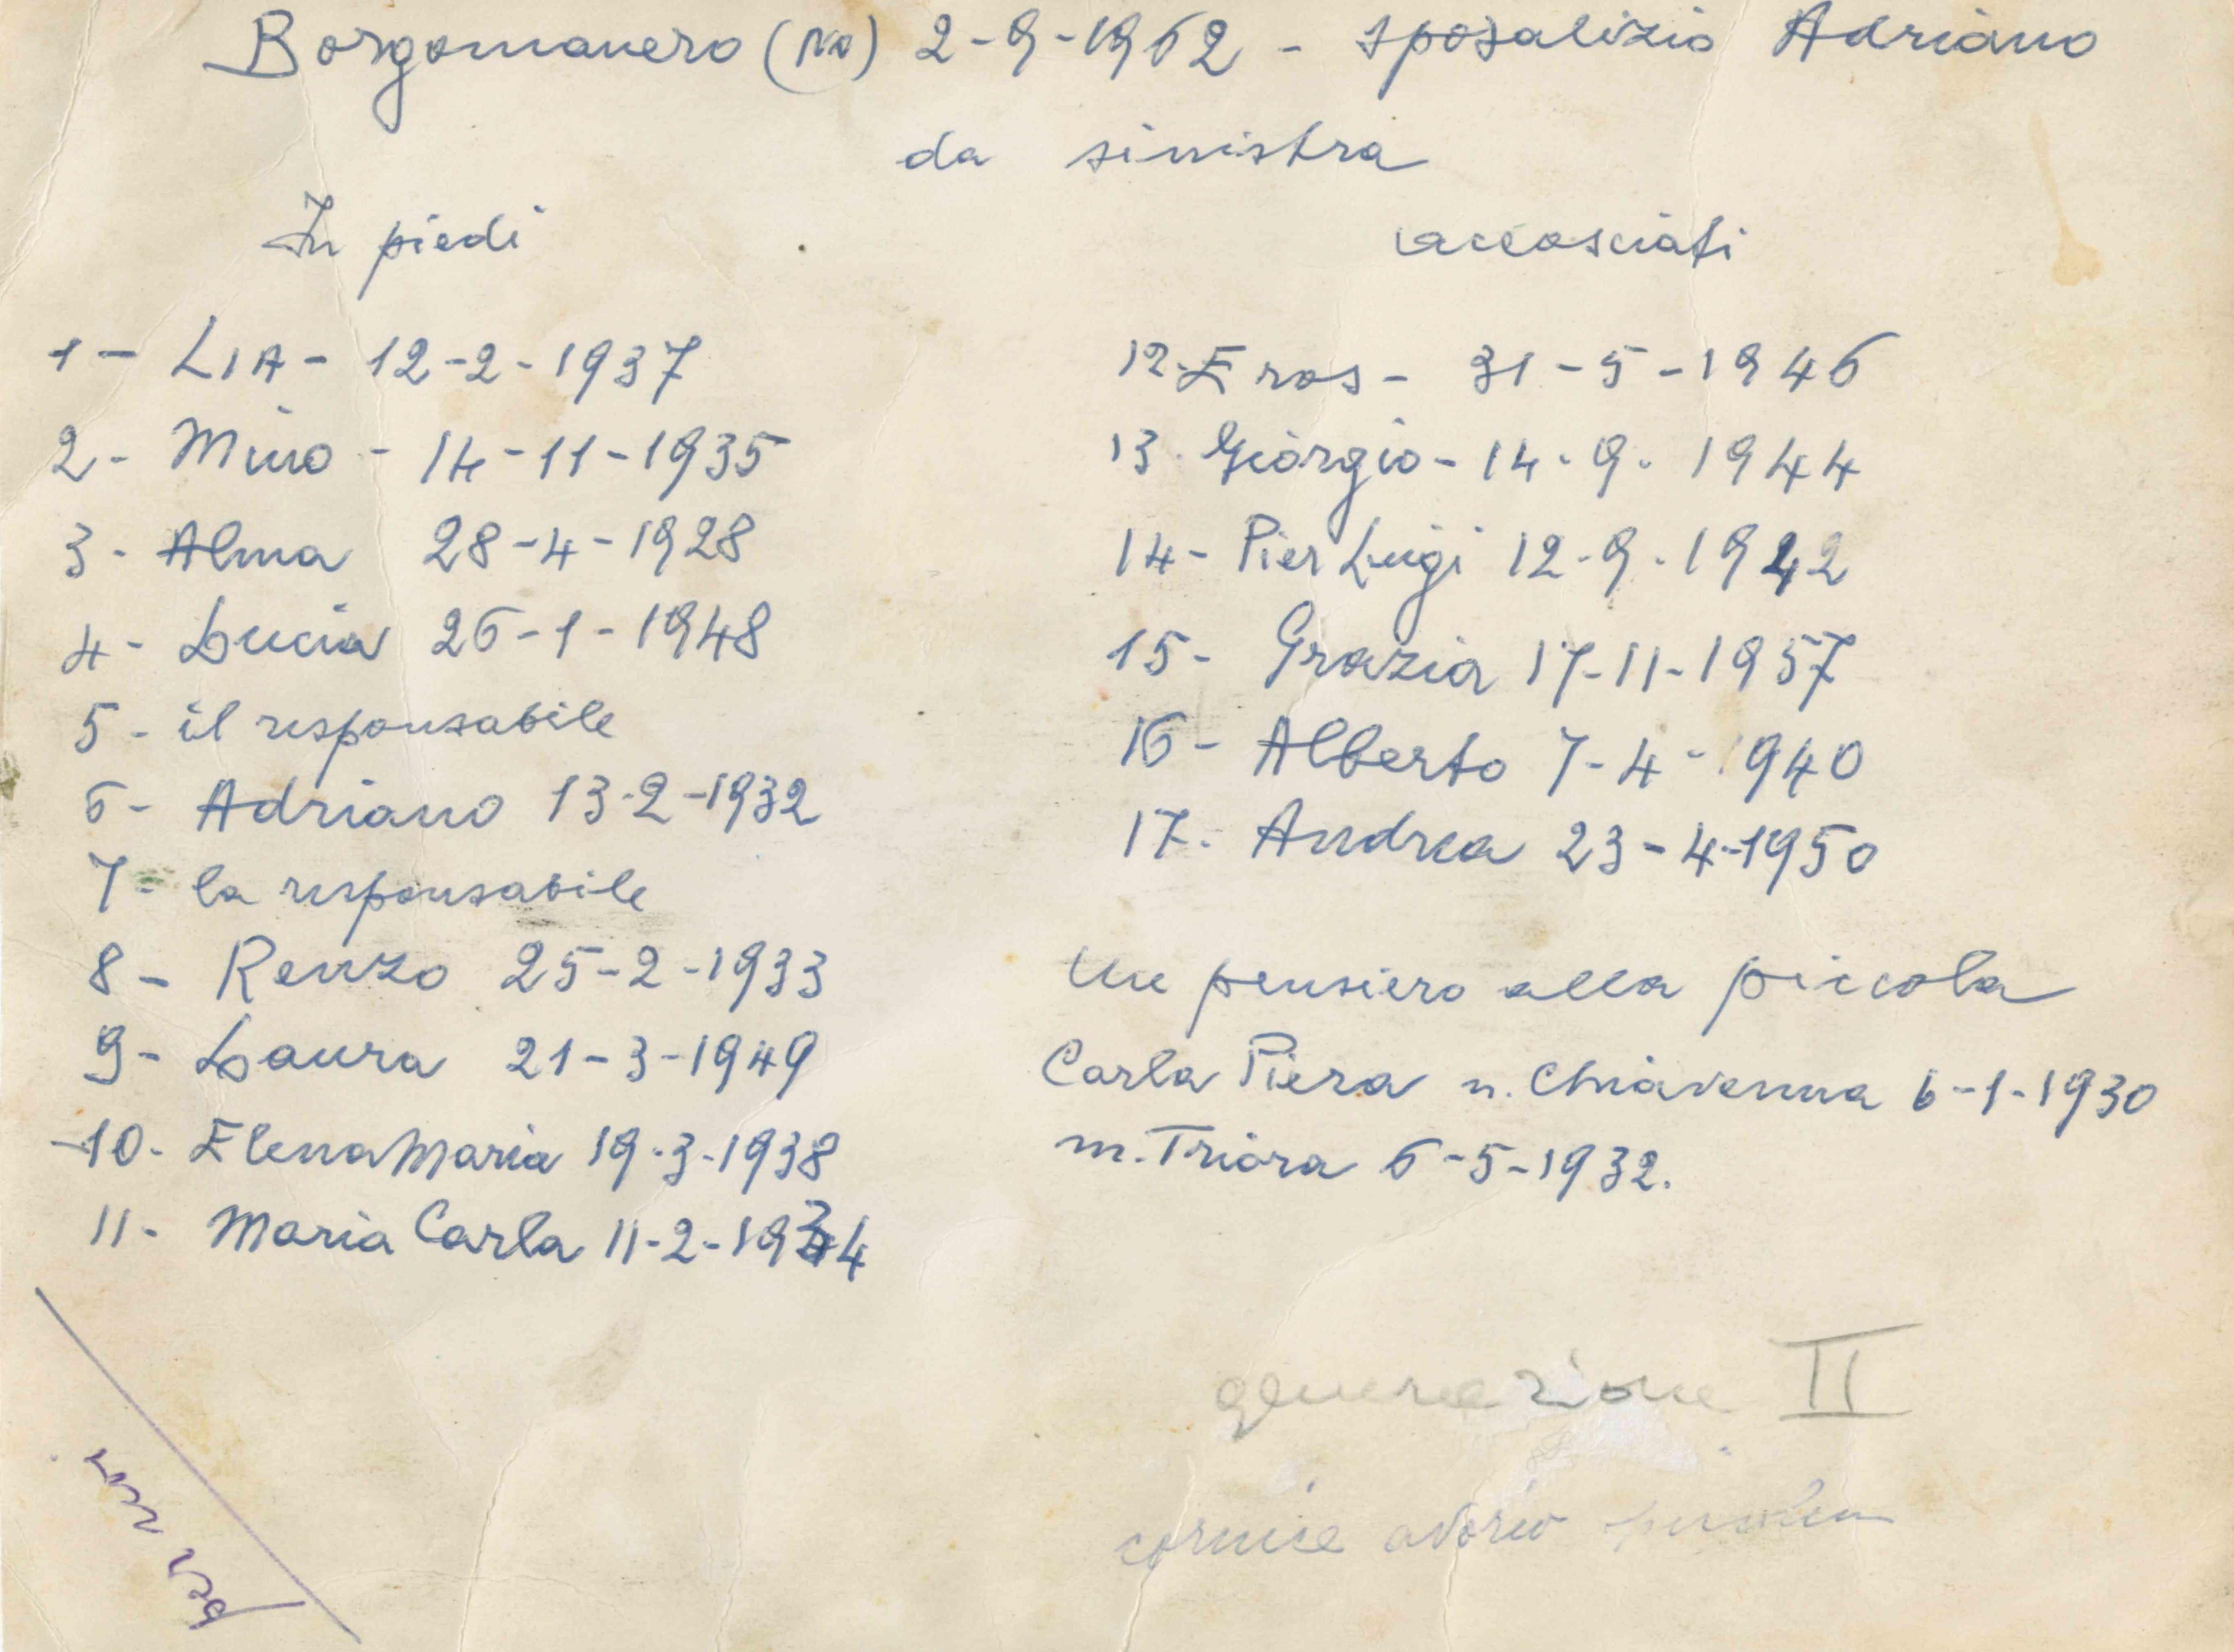 Borgomanero (No) 2-9-1962 - sposalizio Adriano
da sinistra
In piedi
1 - LIA - 12-2-1937
2 - Mino - 14-11-1935
3 - Alma 28-4-1928
4 - Lucia 26-1-1948
5 - il responsabile
6 - Adriano 13-2-1932
7 - la responsabile
8 - Renzo 25-2-1933
9 - Laura 21-3-1949
10 - Elena Maria 19-3-1938
11 - Maria Carla 11-2-1934
accosciati
12. Eros - 31-5-1946
13. Giorgio - 14.9.1944
14 - Pier Luigi 12-9-1942
15 - Grazia 17-11-1957
16 - Alberto 7-4-1940
17. Andrea 23-4-1950
un pensiero alla piccola
Carla Piera n. Chiavenna 6-1-1930
m. Triora 6-5-1932.
generazione II
cornice avorio